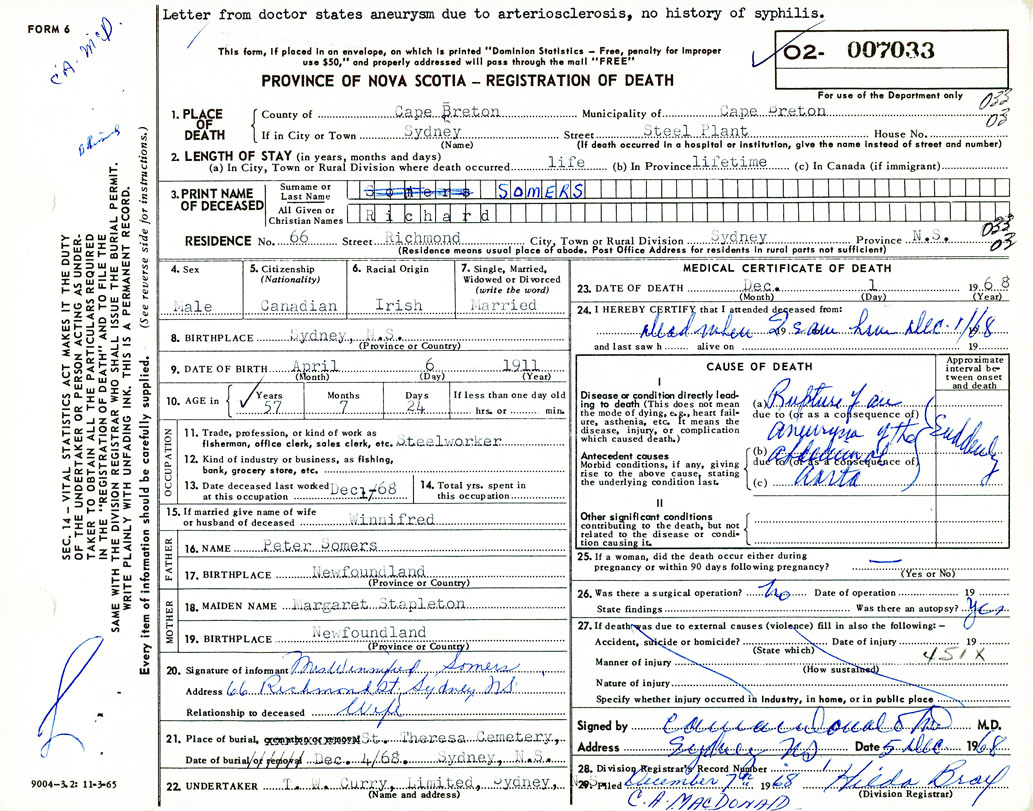 Letter from doctor states aneurysm due to arteriosclerosis, no history of syphilis.
FORM 6
C.A. McD
This form, if placed in an envelope, on which is printed "Dominion Statistics – Free, penalty for improper
use $50," and properly addressed will pass through the mail "FREE"
O2- 007033
PROVINCE OF NOVA SCOTIA – REGISTRATION OF DEATH
For use of the Department only
033
03
1. PLACE OF DEATH
County of Cape Breton Municipality of Cape Breton
If in City or Town Sydney Street Steel Plant House No.
(Name) (If death occurred in a hospital or institution, give the name instead of street and number)
2. LENGTH OF STAY (in years, months and days)
(a) In City, Town or Rural Division where death occurred life (b) In Province lifetime (c) In Canada (if immigrant)
3. PRINT NAME OF DECEASED
Surname or Last Name Somers SOMERS
All Given or Christian Names Richard
033
03
RESIDENCE No. 66 Street Richmond City, Town or Rural Division Sydney Province N.S.
(Residence means usual place of abode. Post Office Address for residents in rural parts not sufficient)
4. Sex
Male
5. Citizenship
(Nationality)
Canadian
6. Racial Origin
Irish
7. Single, Married,
Widowed or Divorced
(write the word)
Married
8. BIRTHPLACE Sydney, N.S.
(Province or Country)
9. DATE OF BIRTH April 6 1911
(Month) (Day) (Year)
10. AGE in Years Months Days If less than one day old
57 7 24 hrs. or min.
OCCUPATION
11. Trade, profession, or kind of work as
fisherman, office clerk, sales clerk, etc. Steelworker
12. Kind of industry or business, as fishing,
bank, grocery store, etc.
13. Date deceased last worked
at this occupation Dec 1/68
14. Total yrs. spent in
this occupation
15. If married give name of wife
or husband of deceased Winnifred
FATHER
16. NAME Peter Somers
17. BIRTHPLACE Newfoundland
(Province or Country)
MOTHER
18. MAIDEN NAME Margaret Stapleton
19. BIRTHPLACE Newfoundland
(Province or Country)
20. Signature of informant Mrs Winnifred Somers
Address 66 Richmond St. Sydney NS
Relationship to deceased Wife
21. Place of burial, cremation or removal St. Theresa Cemetery,
Date of burial or removal Dec. 4/68. Sydney, N.S.
22. UNDERTAKER T. W. Curry, Limited, Sydney, N.S.
(Name and address)
MEDICAL CERTIFICATE OF DEATH
23. DATE OF DEATH Dec. 1 1968
(Month) (Day) (Year)
24. I HEREBY CERTIFY that I attended deceased from:
Dead when I saw him Dec. 1/68 19
and last saw h alive on 19
CAUSE OF DEATH
Approximate
interval be-
tween onset
and death
I
Disease or condition directly lead-
ing to death (This does not mean
the mode of dying, e.g., heart fail-
ure, asthenia, etc. It means the
disease, injury, or complication
which caused death.)
Antecedent causes
Morbid conditions, if any, giving
rise to the above cause, stating
the underlying condition last.
(a) Rupture of an
due to (or as a consequence of)
aneurysm of the
(b) abdominal
due to (or as a consequence of)
(c) Aorta
Suddenly
II
Other significant conditions
contributing to the death, but not
related to the disease or condi-
tion causing it.
25. If a woman, did the death occur either during
pregnancy or within 90 days following pregnancy? —
(Yes or No)
26. Was there a surgical operation? No Date of operation 19
State findings Was there an autopsy? Yes
27. If death was due to external causes (violence) fill in also the following: –
Accident, suicide or homicide? Date of injury 19
(State which)
451X
Manner of injury
(How sustained)
Nature of injury
Specify whether injury occurred in Industry, in home, or in public place
Signed by M.D.
Address Sydney NS Date 5 Dec 1968
28. Division Registrar's Record Number
29. Filed December 7th 1968 Hilda Bray
(Division Registrar)
C.A. MACDONALD
SEC. 14 – VITAL STATISTICS ACT MAKES IT THE DUTY
OF THE UNDERTAKER OR PERSON ACTING AS UNDER-
TAKER TO OBTAIN ALL THE PARTICULARS REQUIRED
IN THE "REGISTRATION OF DEATH" AND TO FILE THE
SAME WITH THE DIVISION REGISTRAR WHO SHALL ISSUE THE BURIAL PERMIT.
WRITE PLAINLY WITH UNFADING INK. THIS IS A PERMANENT RECORD.
Every item of information should be carefully supplied. (See reverse side for instructions.)
9004–3.2: 11-3-65